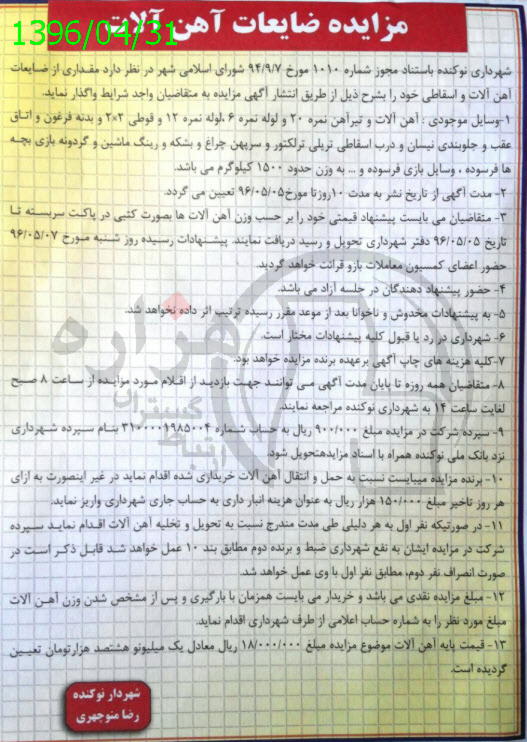 مزایده ضایعات آهن آلات
1396/04/31
شهرداری نوکنده باستناد مجوز شماره ۱۰۱۰ مورخ ۹۴/۹/۷ شورای اسلامی شهر در نظر دارد مقداری از ضایعات
آهن آلات و اسقاطی خود را بشرح ذیل از طریق انتشار آگهی مزایده به متقاضیان واجد شرایط واگذار نماید.
۱-وسایل موجودی : آهن آلات و تیرآهن نمره ۲۰ و لوله نمره ۶ ،لوله نمره ۱۲ و قوطی ۲×۲ و بدنه فرغون و اتاق
عقب و جلوبندی نیسان و درب اسقاطی تریلی ترلکتور و سرپهن چراغ و بشکه و رینگ ماشین و گردونه بازی بچه
ها فرسوده ، وسایل بازی فرسوده و ... به وزن حدود ۱۵۰۰ کیلوگرم می باشد.
۲- مدت آگهی از تاریخ نشر به مدت ۱۰روزتا مورخ۹۶/۰۵/۰۵ تعیین می گردد.
۳- متقاضیان می بایست پیشنهاد قیمتی خود را بر حسب وزن آهن آلات ها بصورت کتبی در پاکت سربسته تا
تاریخ ۹۶/۰۵/۰۵ دفتر شهرداری تحویل و رسید دریافت نمایند. پیشنهادات رسیده روز شنبه مورخ ۹۶/۰۵/۰۷
حضور اعضای کمسیون معاملات بازو قرائت خواهد گردید.
۴- حضور پیشنهاد دهندگان در جلسه آزاد می باشد.
۵- به پیشنهادات مخدوش و ناخوانا بعد از موعد مقرر رسیده ترتیب اثر داده نخواهد شد.
۶- شهرداری در رد یا قبول کلیه پیشنهادات مختار است.
۷-کلیه هزینه های چاپ آگهی برعهده برنده مزایده خواهد بود.
۸- متقاضیان همه روزه تا پایان مدت آگهی می توانند جهت بازدید از اقلام مورد مزایده از ساعت ۸ صبح
لغایت ساعت ۱۴ به شهرداری نوکنده مراجعه نمایند.
۹- سپرده شرکت در مزایده مبلغ ۹۰۰/۰۰۰ ریال به حساب شماره ۳۱۰۰۰۰۱۹۸۵۰۰۴ بنام سپرده شهرداری
نزد بانک ملی نوکنده همراه با اسناد مزایدهتحویل شود.
۱۰- برنده مزایده میبایست نسبت به حمل و انتقال آهن آلات خریداری شده اقدام نماید در غیر اینصورت به ازای
هر روز تاخیر مبلغ ۱۵۰/۰۰۰ هزار ریال به عنوان هزینه انبار داری به حساب جاری شهرداری واریز نماید.
۱۱- در صورتیکه نفر اول به هر دلیلی طی مدت مندرج نسبت به تحویل و تخلیه آهن آلات اقدام نماید سپرده
شرکت در مزایده ایشان به نفع شهرداری ضبط و برنده دوم مطابق بند ۱۰ عمل خواهد شد قابل ذکر است در
صورت انصراف نفر دوم، مطابق نفر اول با وی عمل خواهد شد.
۱۲- مبلغ مزایده نقدی می باشد و خریدار می بایست همزمان با بارگیری و پس از مشخص شدن وزن آهن آلات
مبلغ مورد نظر را به شماره حساب اعلامی از طرف شهرداری اقدام نماید.
۱۳- قیمت پایه آهن آلات موضوع مزایده مبلغ ۱۸/۰۰۰/۰۰۰ ریال معادل یک میلیونو هشتصد هزارتومان تعیین
گردیده است.
شهردار نوکنده
رضا منوچهری
هزاره
گستران
ارتباط